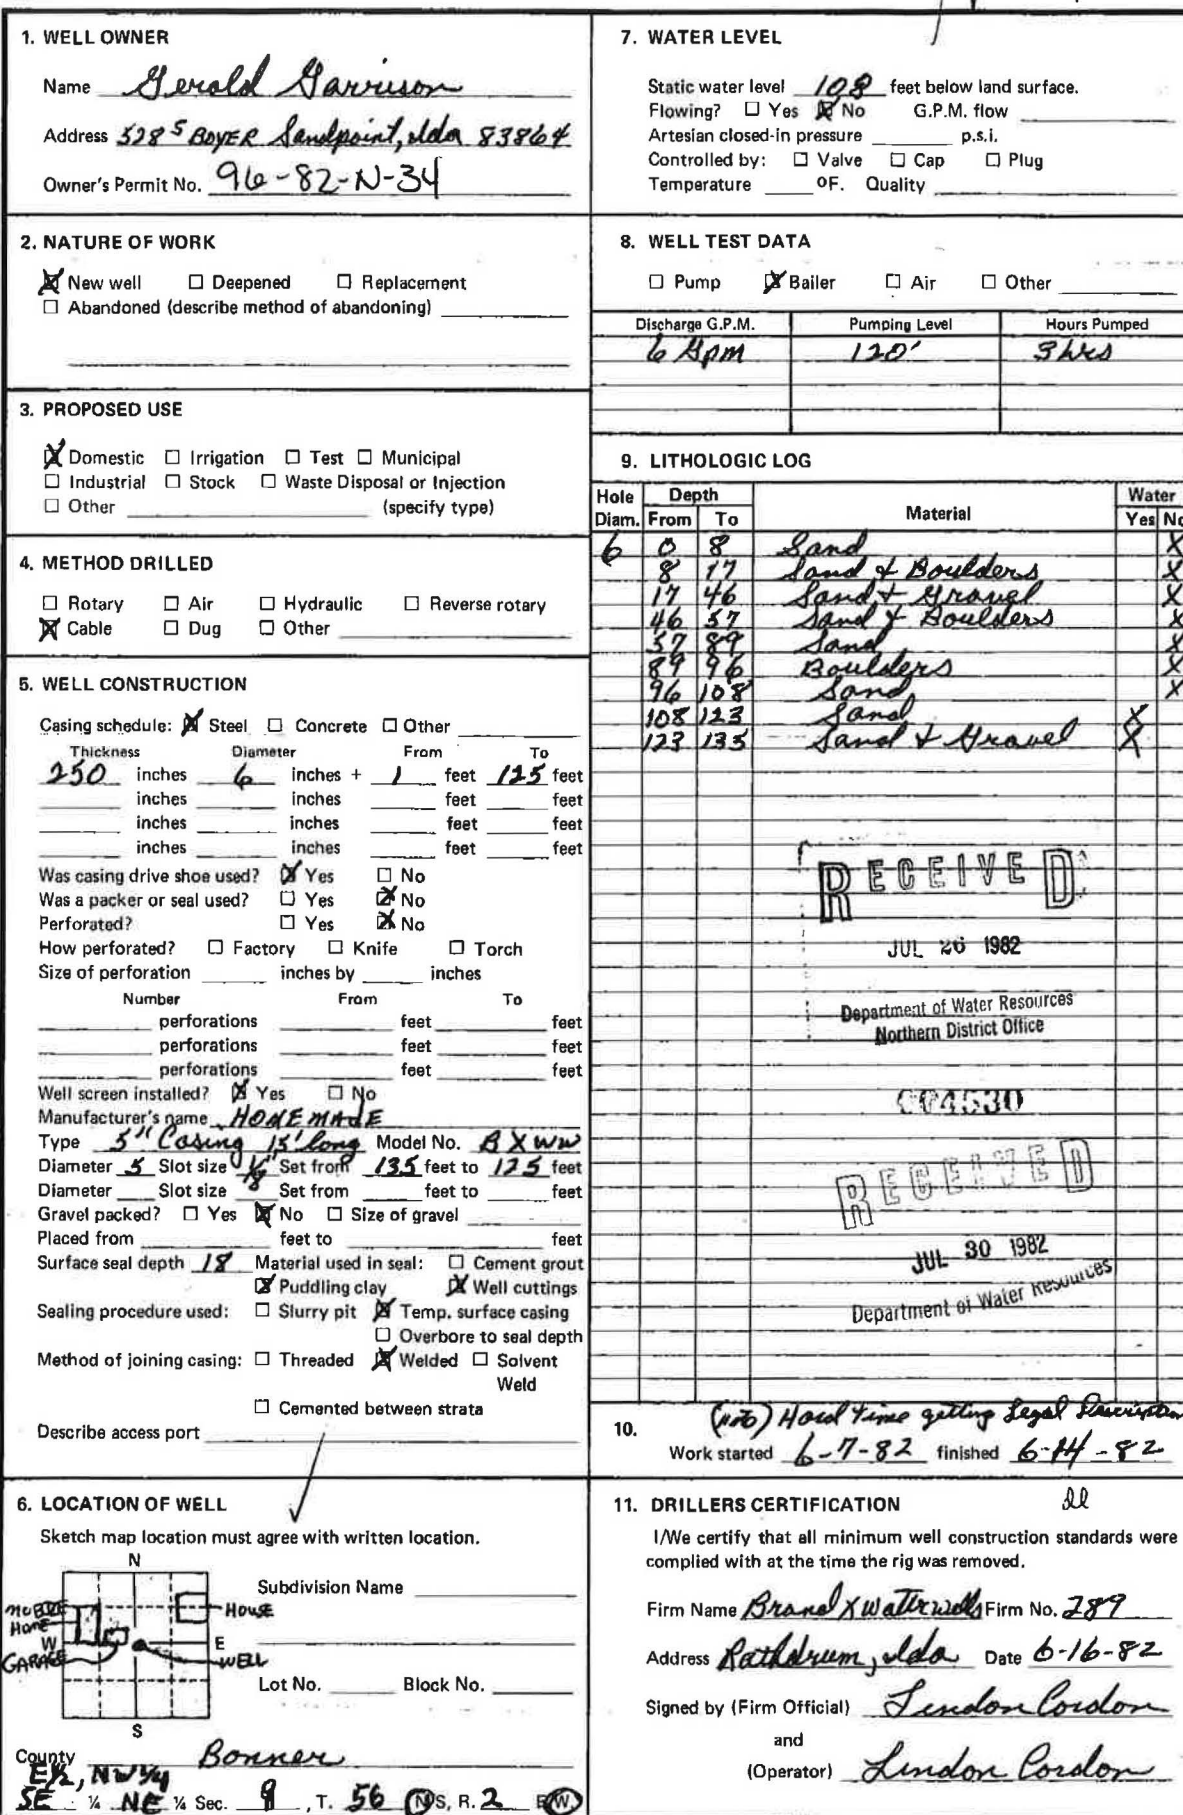 1. WELL OWNER
Name Gerald Garrison
Address 528 S BOYER Sandpoint, Ida 83864
Owner's Permit No. 96-82-N-34
2. NATURE OF WORK
☒ New well ☐ Deepened ☐ Replacement
☐ Abandoned (describe method of abandoning)
3. PROPOSED USE
☒ Domestic ☐ Irrigation ☐ Test ☐ Municipal
☐ Industrial ☐ Stock ☐ Waste Disposal or Injection
☐ Other (specify type)
4. METHOD DRILLED
☐ Rotary ☐ Air ☐ Hydraulic ☐ Reverse rotary
☒ Cable ☐ Dug ☐ Other
5. WELL CONSTRUCTION
Casing schedule: ☒ Steel ☐ Concrete ☐ Other
Thickness Diameter From To
250 inches 6 inches + 1 feet 125 feet
inches inches feet feet
inches inches feet feet
inches inches feet feet
Was casing drive shoe used? ☒ Yes ☐ No
Was a packer or seal used? ☐ Yes ☒ No
Perforated? ☐ Yes ☒ No
How perforated? ☐ Factory ☐ Knife ☐ Torch
Size of perforation inches by inches
Number From To
perforations feet feet
perforations feet feet
perforations feet feet
Well screen installed? ☒ Yes ☐ No
Manufacturer's name HOMEMADE
Type 5" Casing 15' long Model No. B X WW
Diameter 5 Slot size 1/8" Set from 135 feet to 125 feet
Diameter Slot size Set from feet to feet
Gravel packed? ☐ Yes ☒ No ☐ Size of gravel
Placed from feet to feet
Surface seal depth 18 Material used in seal: ☐ Cement grout
☒ Puddling clay ☒ Well cuttings
Sealing procedure used: ☐ Slurry pit ☒ Temp. surface casing
☐ Overbore to seal depth
Method of joining casing: ☐ Threaded ☒ Welded ☐ Solvent
Weld
☐ Cemented between strata
Describe access port
6. LOCATION OF WELL
Sketch map location must agree with written location.
N
Subdivision Name
MOBILE
HOME
HOUSE
W E
GARAGE
WELL
Lot No. Block No.
S
County Bonner
E½, NW¼
SE ¼ NE ¼ Sec. 9, T. 56 N/S, R. 2 E/W
7. WATER LEVEL
Static water level 108 feet below land surface.
Flowing? ☐ Yes ☒ No G.P.M. flow
Artesian closed-in pressure p.s.i.
Controlled by: ☐ Valve ☐ Cap ☐ Plug
Temperature ºF. Quality
8. WELL TEST DATA
☐ Pump ☒ Bailer ☐ Air ☐ Other
Discharge G.P.M. Pumping Level Hours Pumped
6 Gpm 120' 3 hrs
9. LITHOLOGIC LOG
Hole Depth Water
Diam. From To Material Yes No
6 0 8 Sand X
8 17 Sand & Boulders X
17 46 Sand + Gravel X
46 57 Sand & Boulders X
57 89 Sand X
89 96 Boulders X
96 108 Sand X
108 123 Sand X
123 135 Sand + Gravel X
RECEIVED
JUL 26 1982
Department of Water Resources
Northern District Office
004530
RECEIVED
JUL 30 1982
Department of Water Resources
10. (note) Hard time getting Legal Description
Work started 6-7-82 finished 6-14-82
11. DRILLERS CERTIFICATION
I/We certify that all minimum well construction standards were
complied with at the time the rig was removed.
Firm Name Brand X Waterwells Firm No. 289
Address Rathdrum, Ida Date 6-16-82
Signed by (Firm Official) Lindon Cordon
and
(Operator) Lindon Cordon